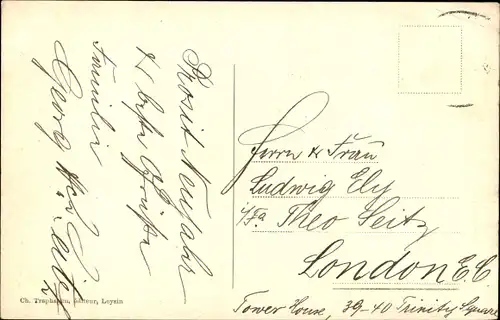 Prosit Neujahr
& beste Grüße
Familie
Georg
Herrn & Frau
Ludwig Ely
i/Fa. Theo Seitz
London E.C.
Tower House, 39-40 Trinity Square
Ch. Trapheim, Éditeur, Leysin